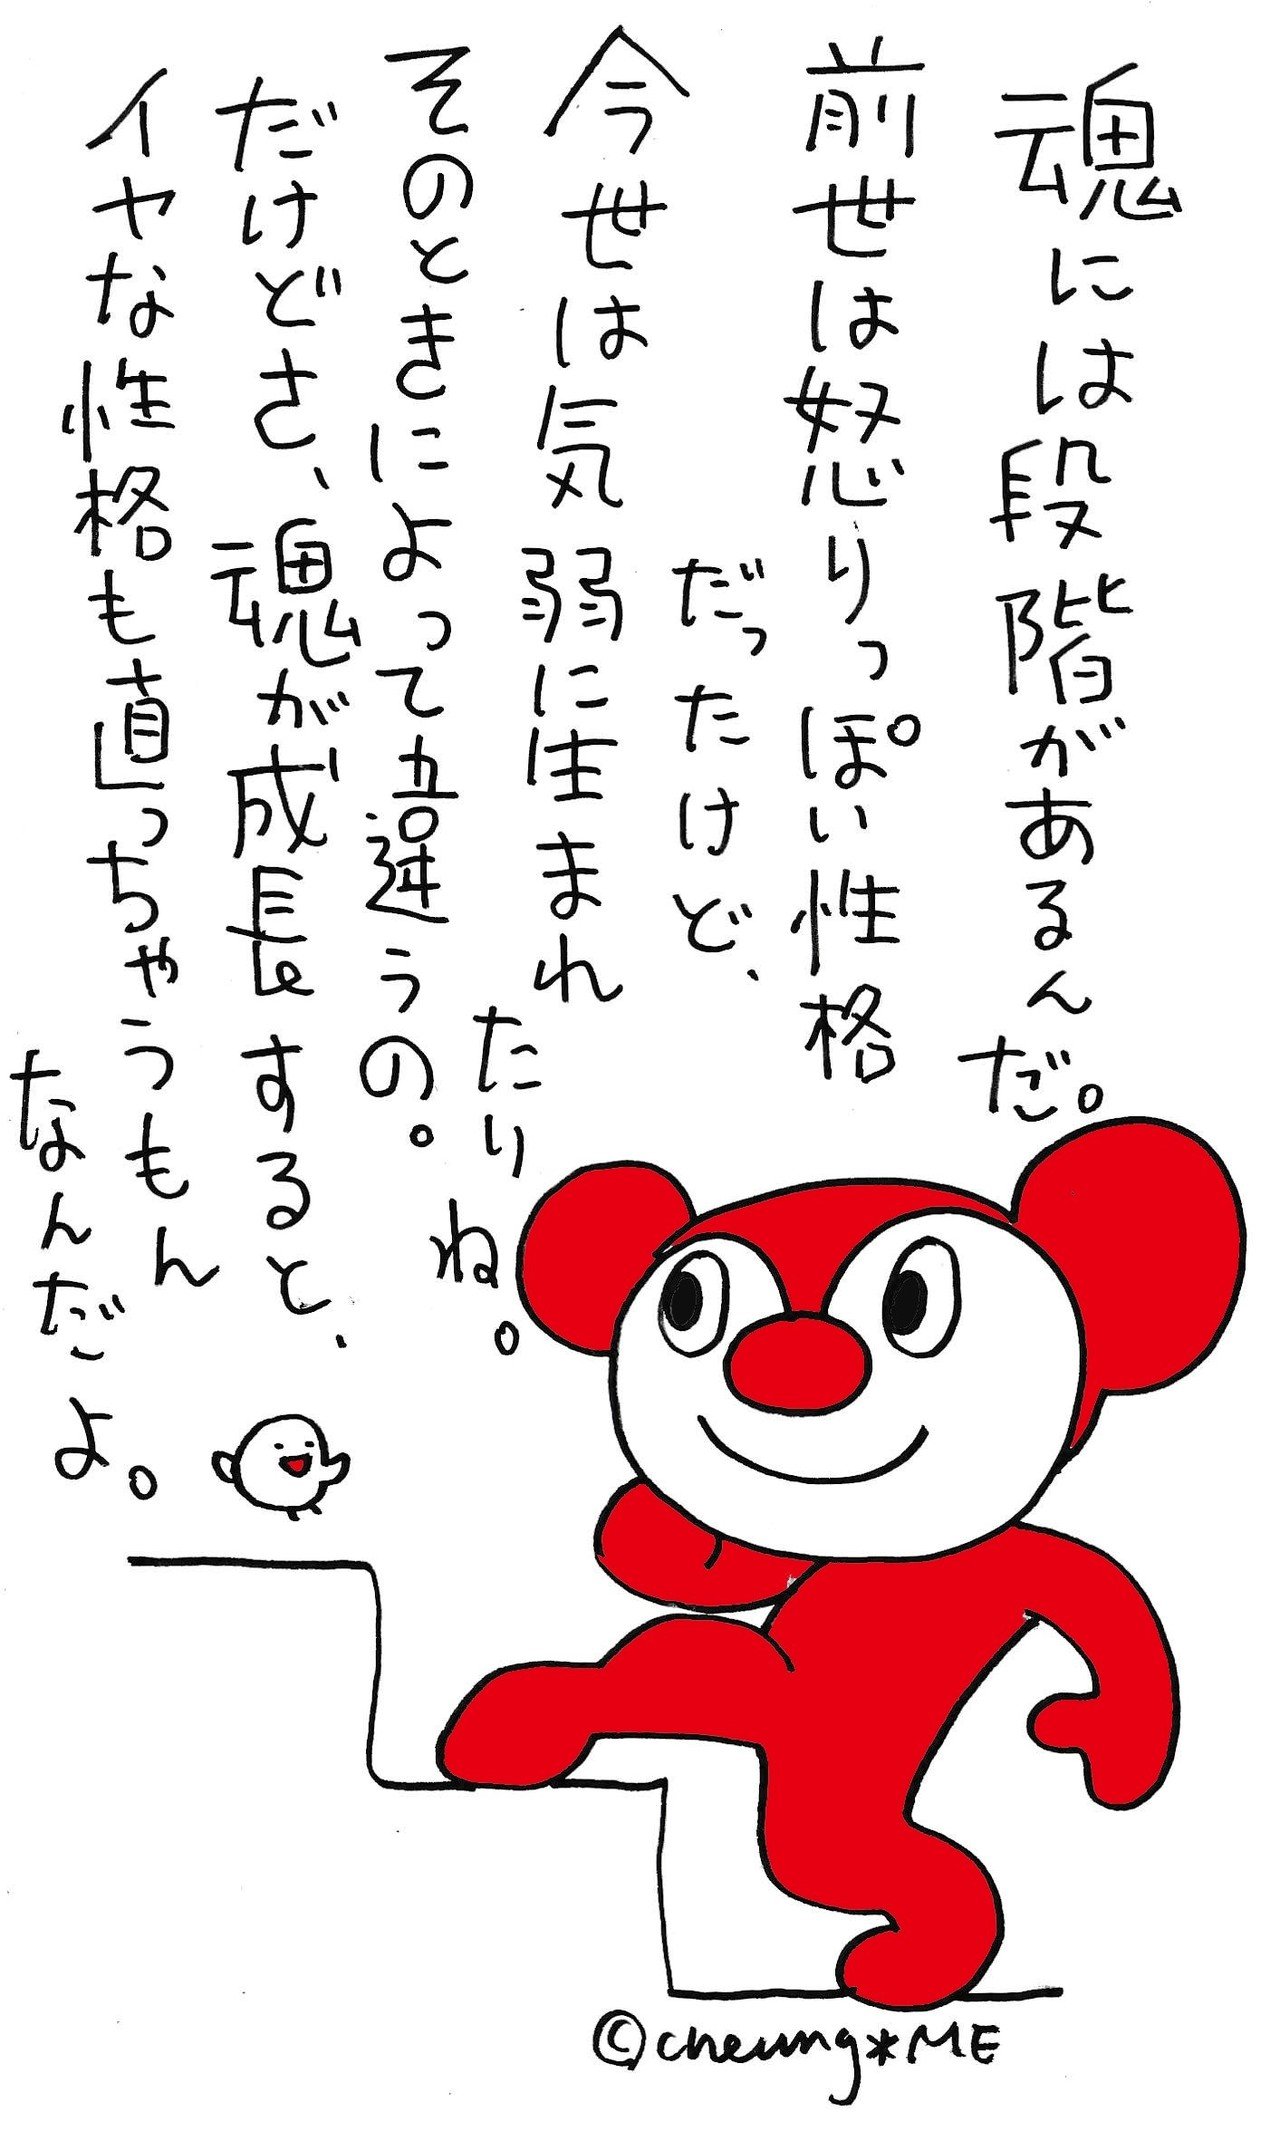 魂には段階があるんだ。
前世は怒りっぽい性格
だったけど、
今世は気弱に生まれ
たりね。
そのときによって全然違うの。
だけどさ、魂が成長すると、
イヤな性格も直っちゃうもん
なんだよ。
©cheung*ME